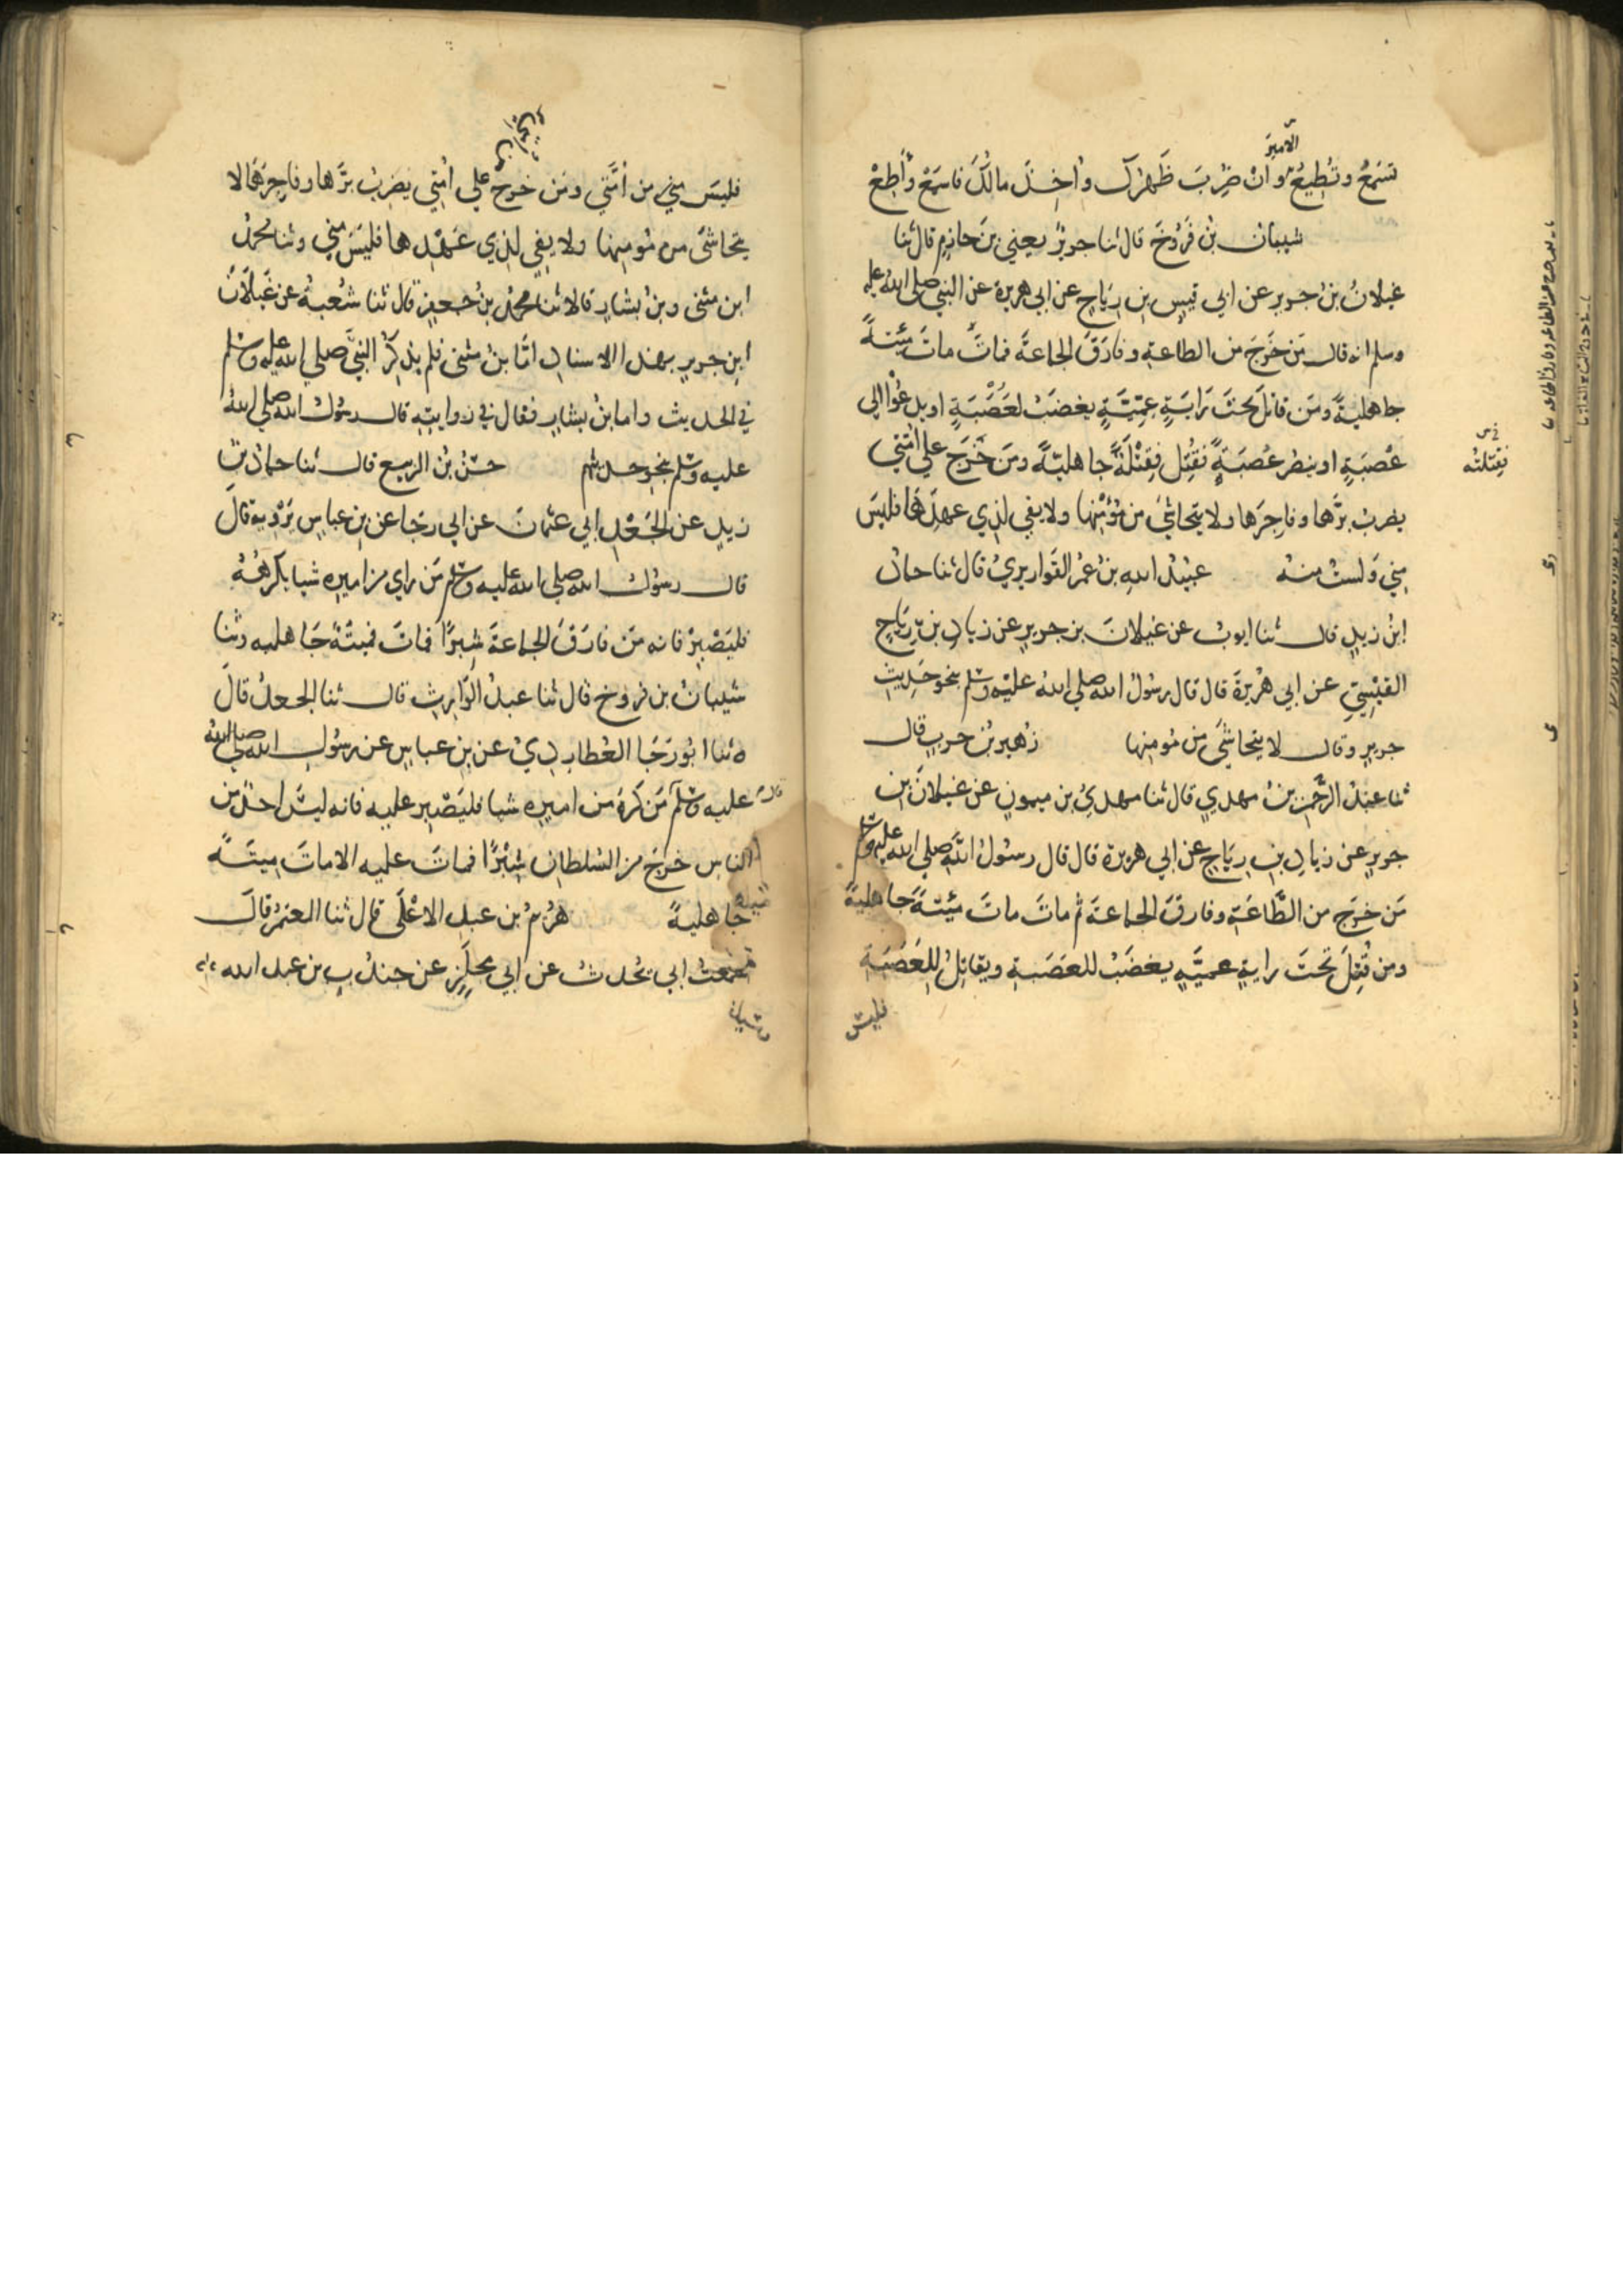 الامير
تسمع وتطيع وان ضرب ظهرك واخذ مالك فاسمع واطع
شيبان بن فروخ قال ثنا جرير يعني بن حازم قال ثنا
غيلان بن جرير عن ابي قيس بن رياح عن ابي هريرة عن النبي صلى الله عليه
وسلم انه قال من خرج من الطاعة وفارق الجماعة فمات مات ميتة
جاهلية ومن قاتل تحت راية عمية يغضب لعصبة او يدعوا الى
عصبة او ينصر عصبة فقتل فقتلة جاهلية ومن خرج على امتي
فقتلته
يضرب برها وفاجرها ولا يتحاشى من مؤمنها ولا يفي لذي عهدها فليس
مني ولست منه عبيد الله بن عمر القواريري قال ثنا حماد
ابن زيد قال ثنا ايوب عن غيلان بن جرير عن زياد بن رياح
القيسي عن ابي هريرة قال قال رسول الله صلى الله عليه وسلم بنحو حديث
جرير وقال لا يتحاشى من مومنها زهير بن حرب قال
ثنا عبد الرحمن بن مهدي قال ثنا مهدي بن ميمون عن غيلان بن
جرير عن زياد بن رياح عن ابي هريرة قال قال رسول الله صلى الله عليه وسلم
من خرج من الطاعة وفارق الجماعة ثم مات مات ميتة جاهلية
ومن قتل تحت راية عمية يغضب للعصبة ويقاتل للعصبة
فليس
فليس مني من امتي ومن خرج على امتي يضرب برها وفاجرها لا
يتحاشى من مومنها ولا يفي لذي عهدها فليس مني وثنا محمد
ابن مثنى وبن بشار قالا ثنا محمد بن جعفر قال ثنا شعبة عن غيلان
ابن جرير بهذا الاسناد اما بن مثنى فلم يذكر النبي صلى الله عليه وسلم
في الحديث واما ابن بشار فقال في روايته قال رسول الله صلى الله
عليه وسلم بنحو حديثهم حسن بن الربيع قال ثنا حماد بن
زيد عن الجعد ابي عثمان عن ابي رجا عن بن عباس يرويه قال
قال رسول الله صلى الله عليه وسلم من راي من اميره شيا يكرهه
فليصبر فانه من فارق الجماعة شبرا فمات فميتة جاهلية وثنا
شيبان بن فروخ قال ثنا عبد الوارث قال ثنا الجعد قال
ثنا ابو رجا العطاردي عن بن عباس عن رسول الله صلى الله
عليه وسلم قال من كره من اميره شيا فليصبر عليه فانه ليس احد من
الناس خرج من السلطان شبرا فمات عليه الا مات ميتة
جاهلية هريم بن عبد الاعلى قال ثنا المعتمر قال
سمعت ابي يحدث عن ابي مجلز عن جندب بن عبد الله